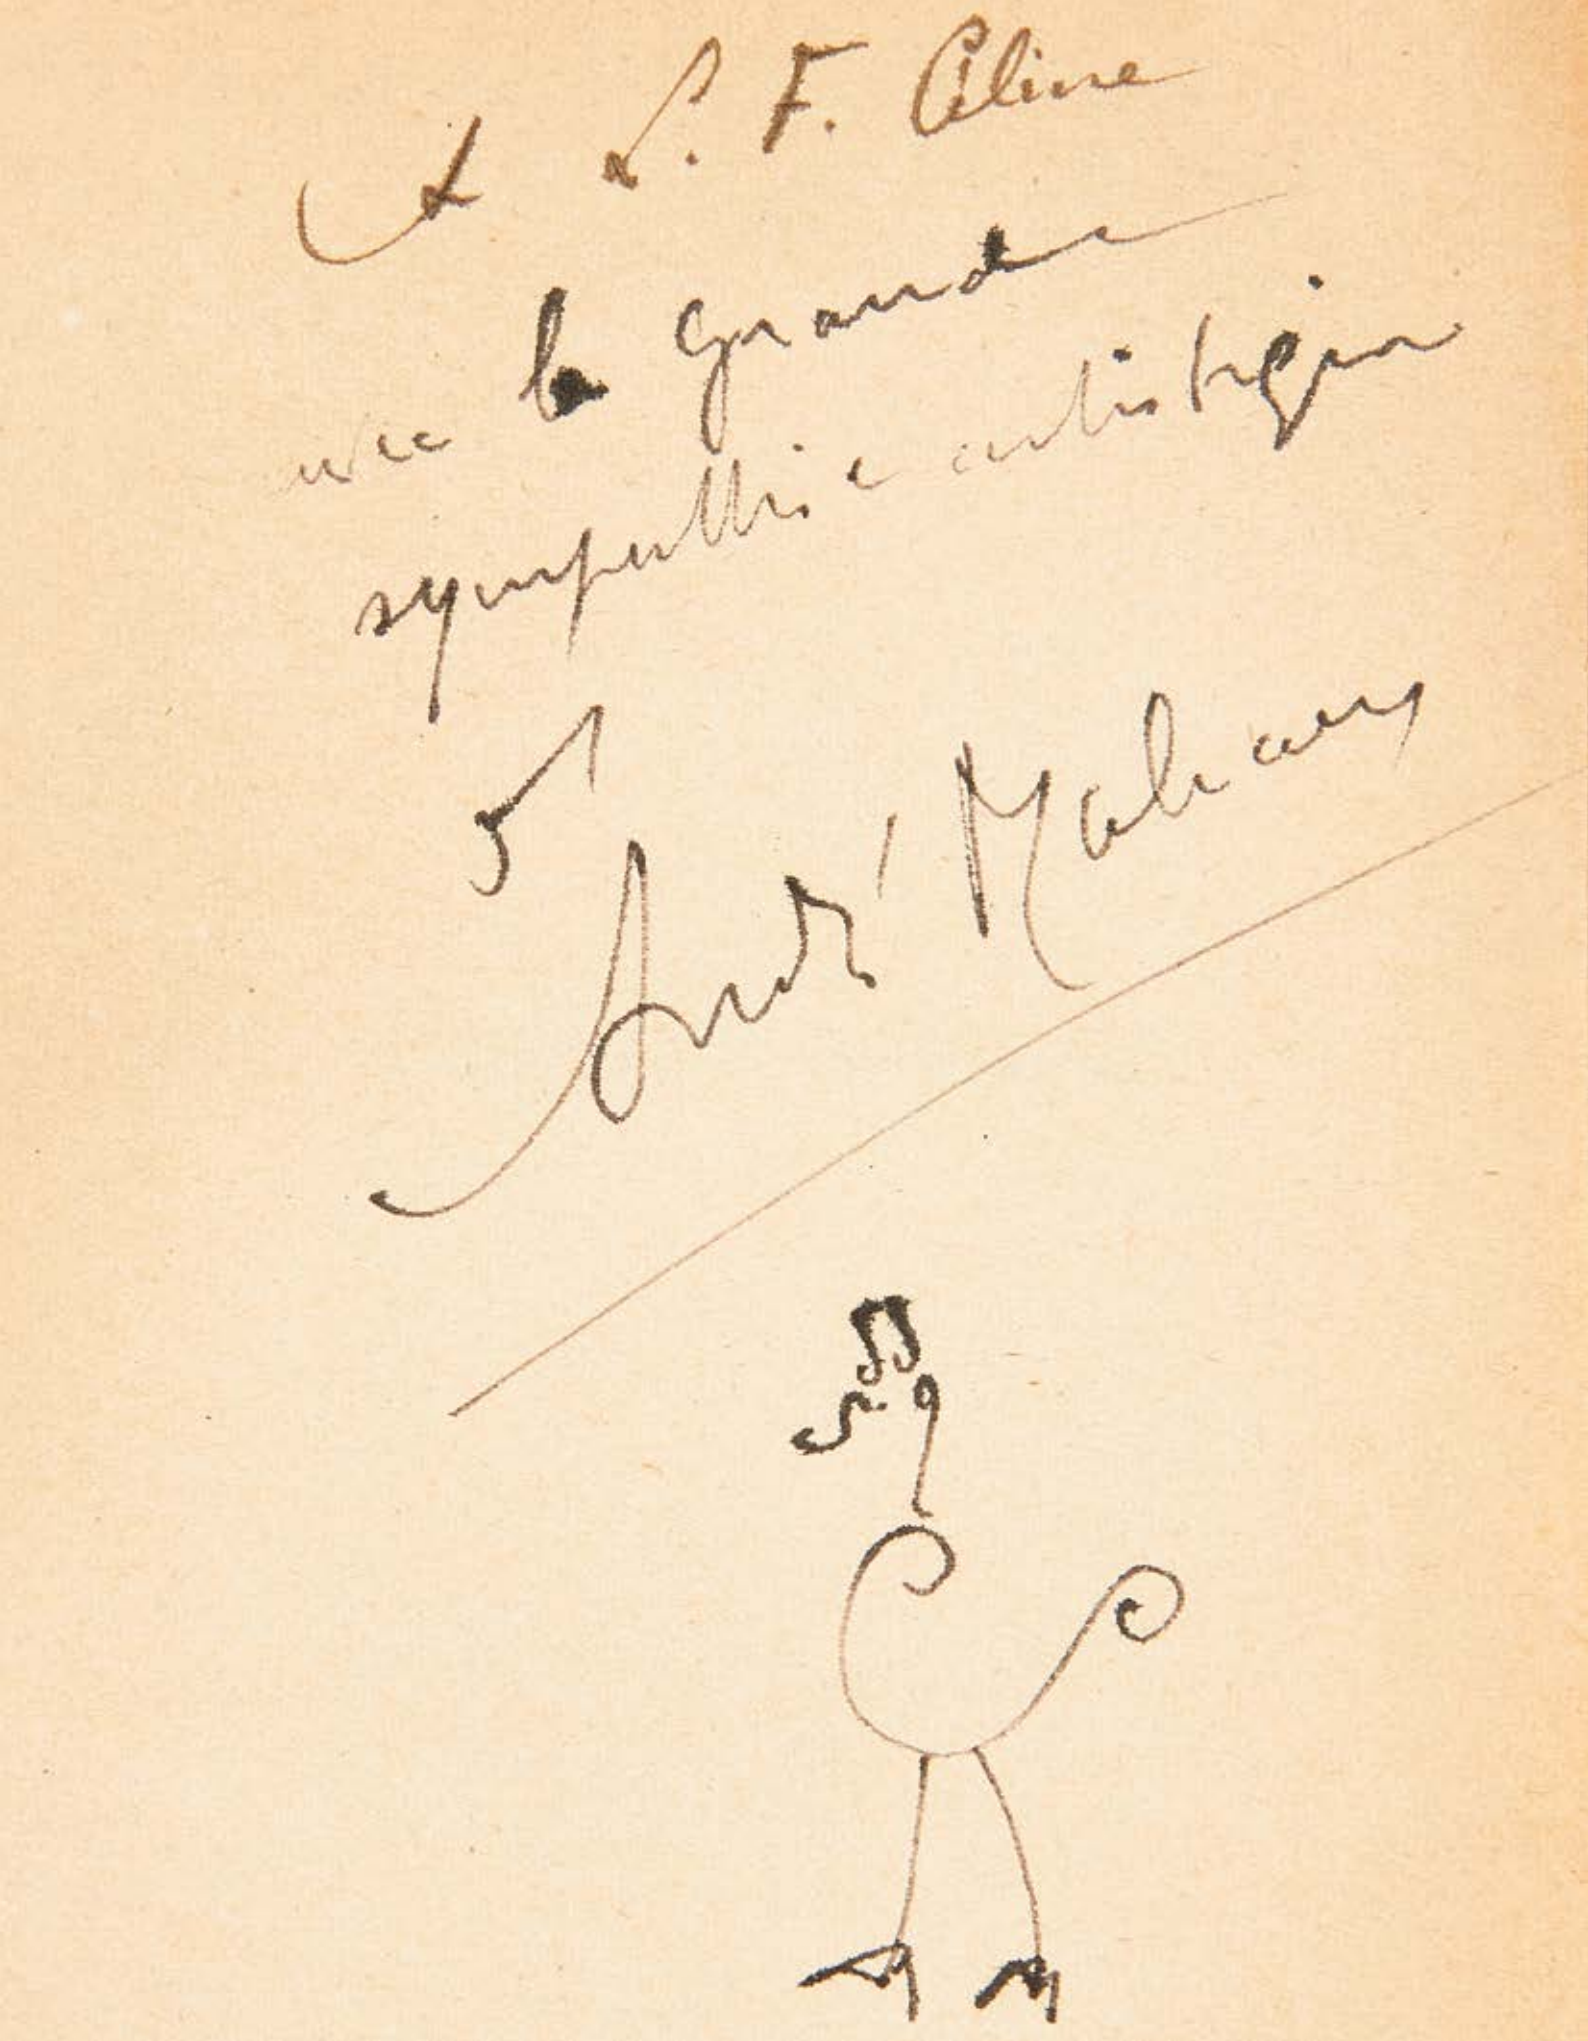 A L. F. Céline
avec la grande
sympathie artistique
André Malraux